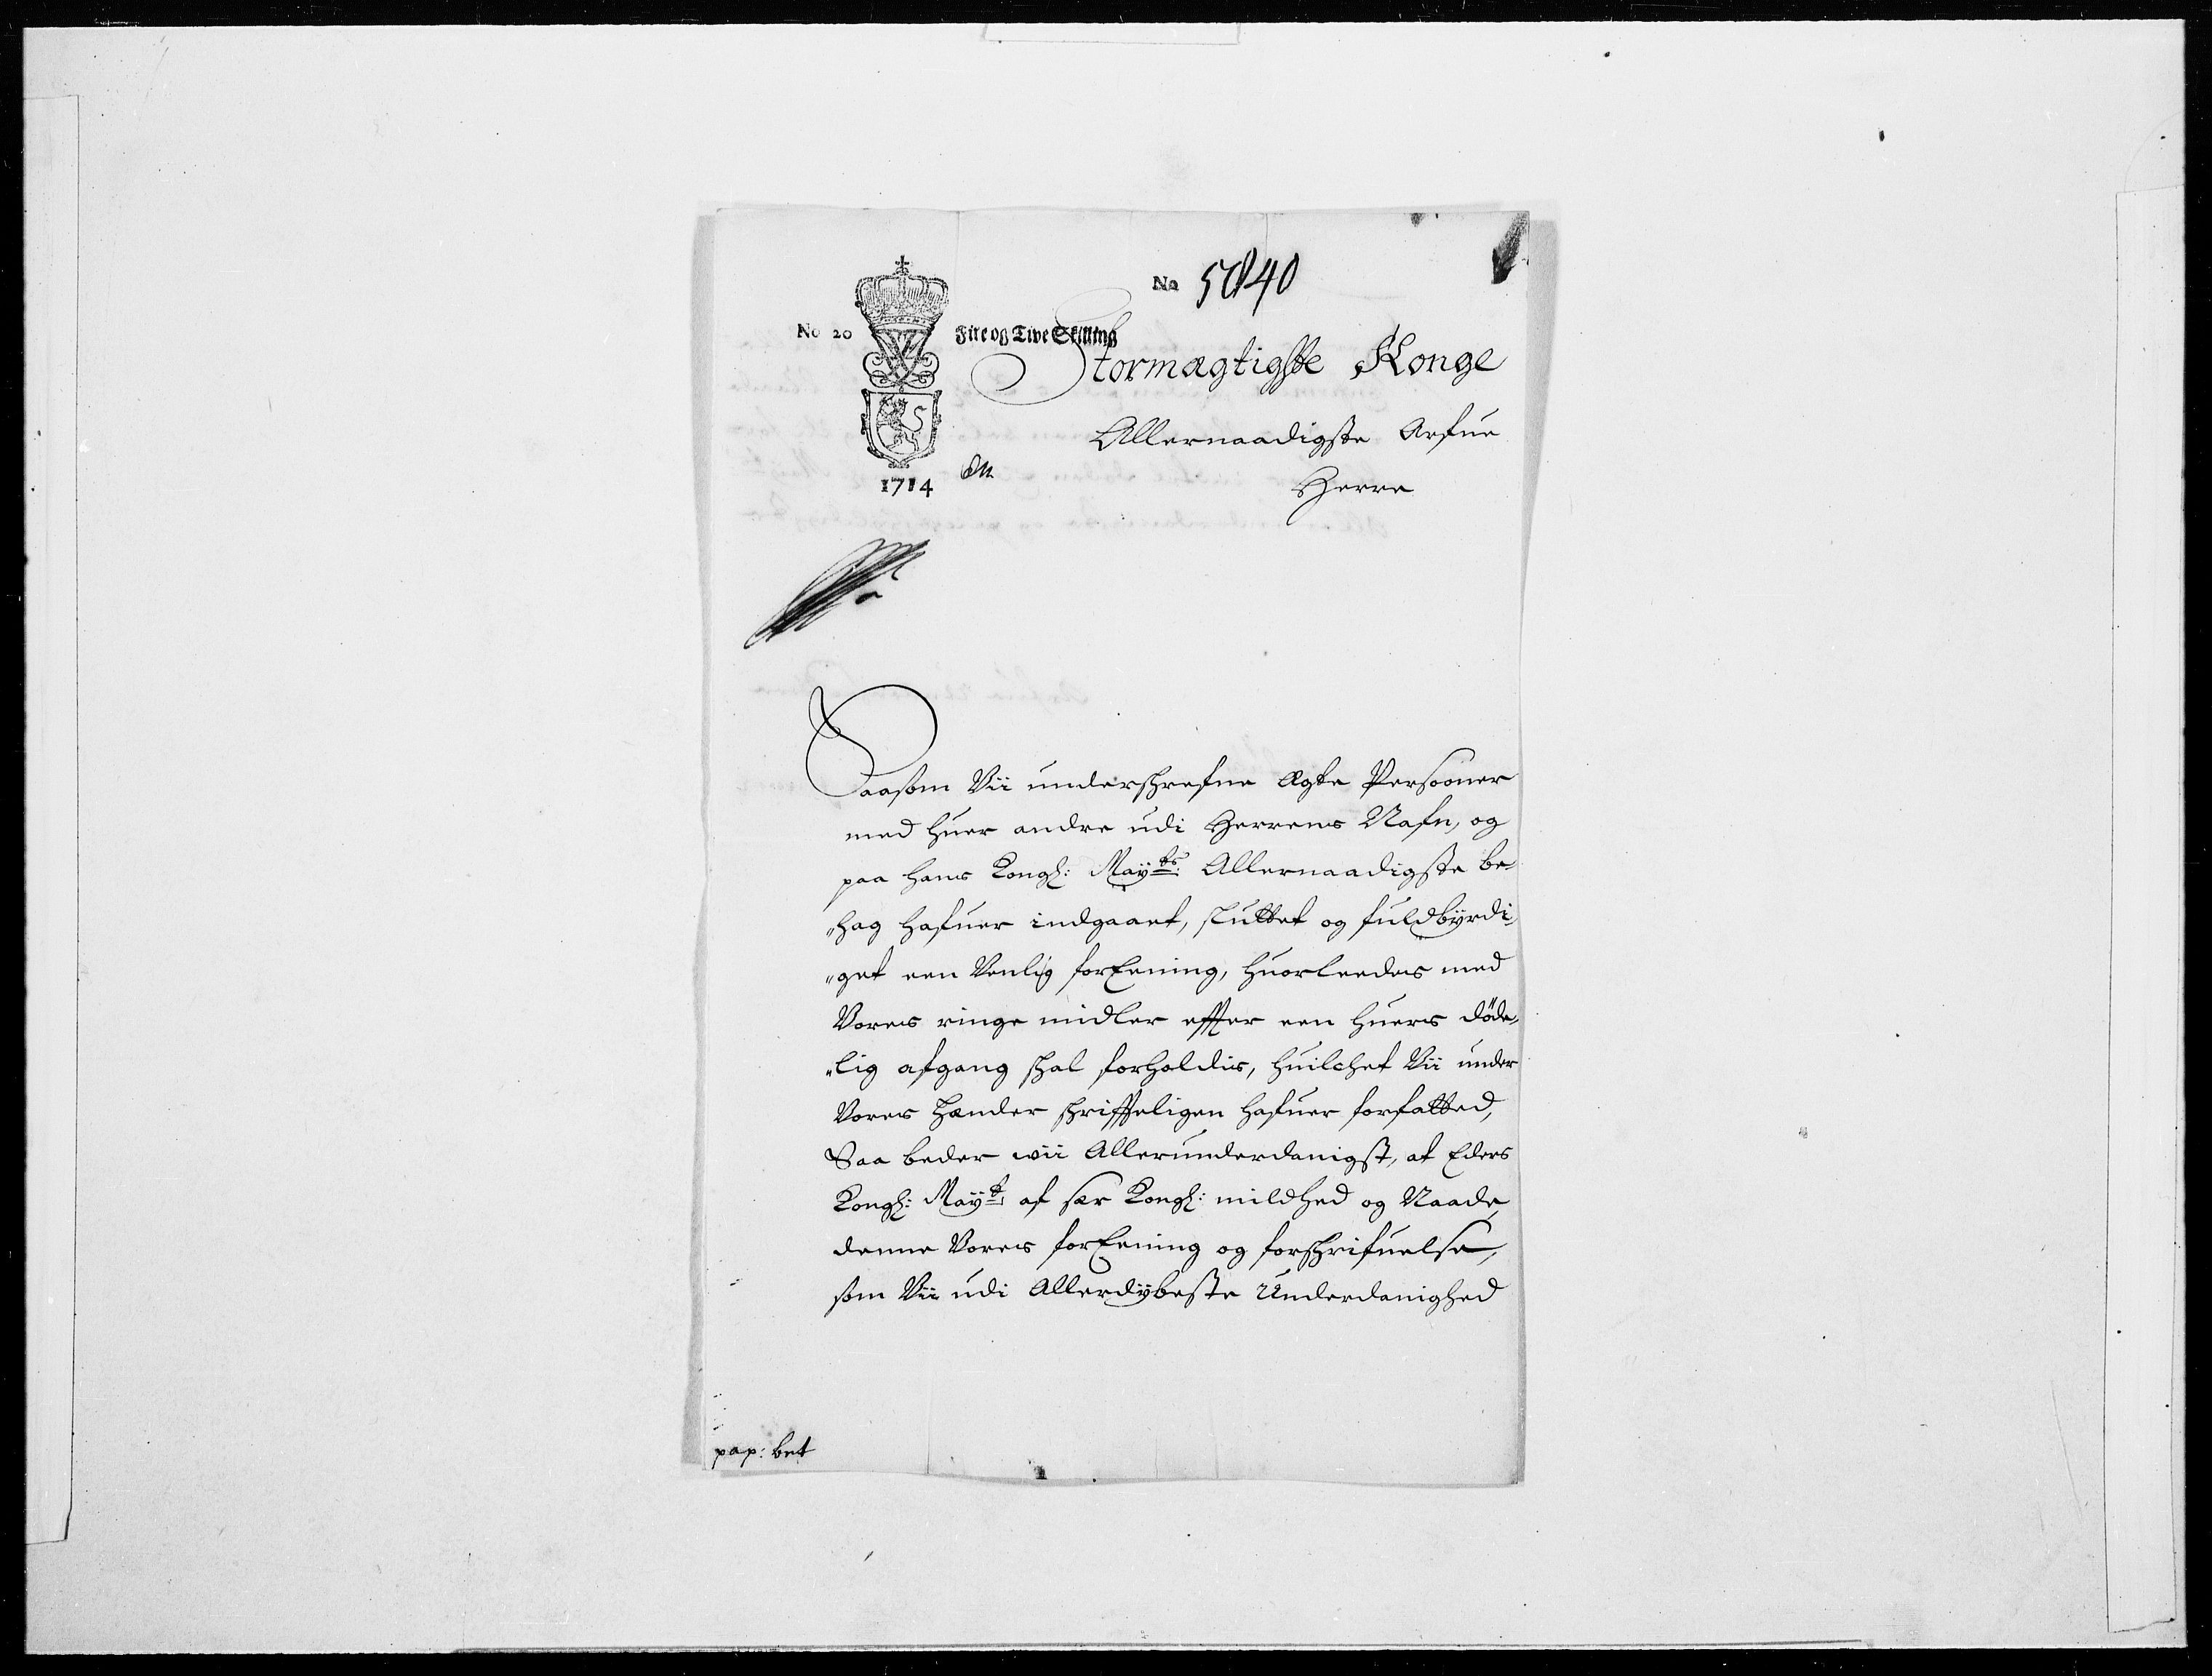 No 5840
No 20
Fire og Tive Skilling
Stormægtigste Konge
Allernaadigste Arfue
Herre
1714
Saasom Vii underskrefne Ægte Persooner
med huer andre udi Herrens Nafn, og
paa hans Kongl: Mayts: Allernaadigste be-
"hag hafuer indgaaet, sluttet og fuldbyrdi-
"get een Venlig forEening, huorleedes med
Vores ringe midler effter een huers døde-
"lig afgang skal forholdis, huilchet Vii under
Vores Hænder skrifftligen hafuer forfatted,
Saa beder wii Allerunderdanigst, at Eders
Kongl: Mayt: af sær Kongl: mildhed og Naade,
denne Vores forEening og forskrifuelse,
som Vii udi Allerdybeste Underdanighed
pap: bet